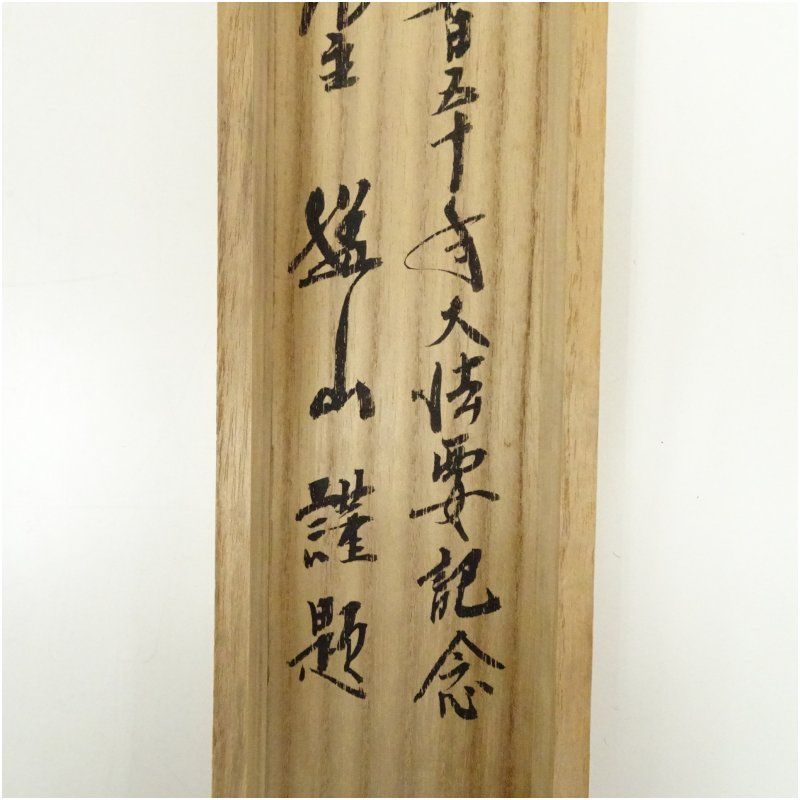 百五十年大法要記念
主 山 謹題